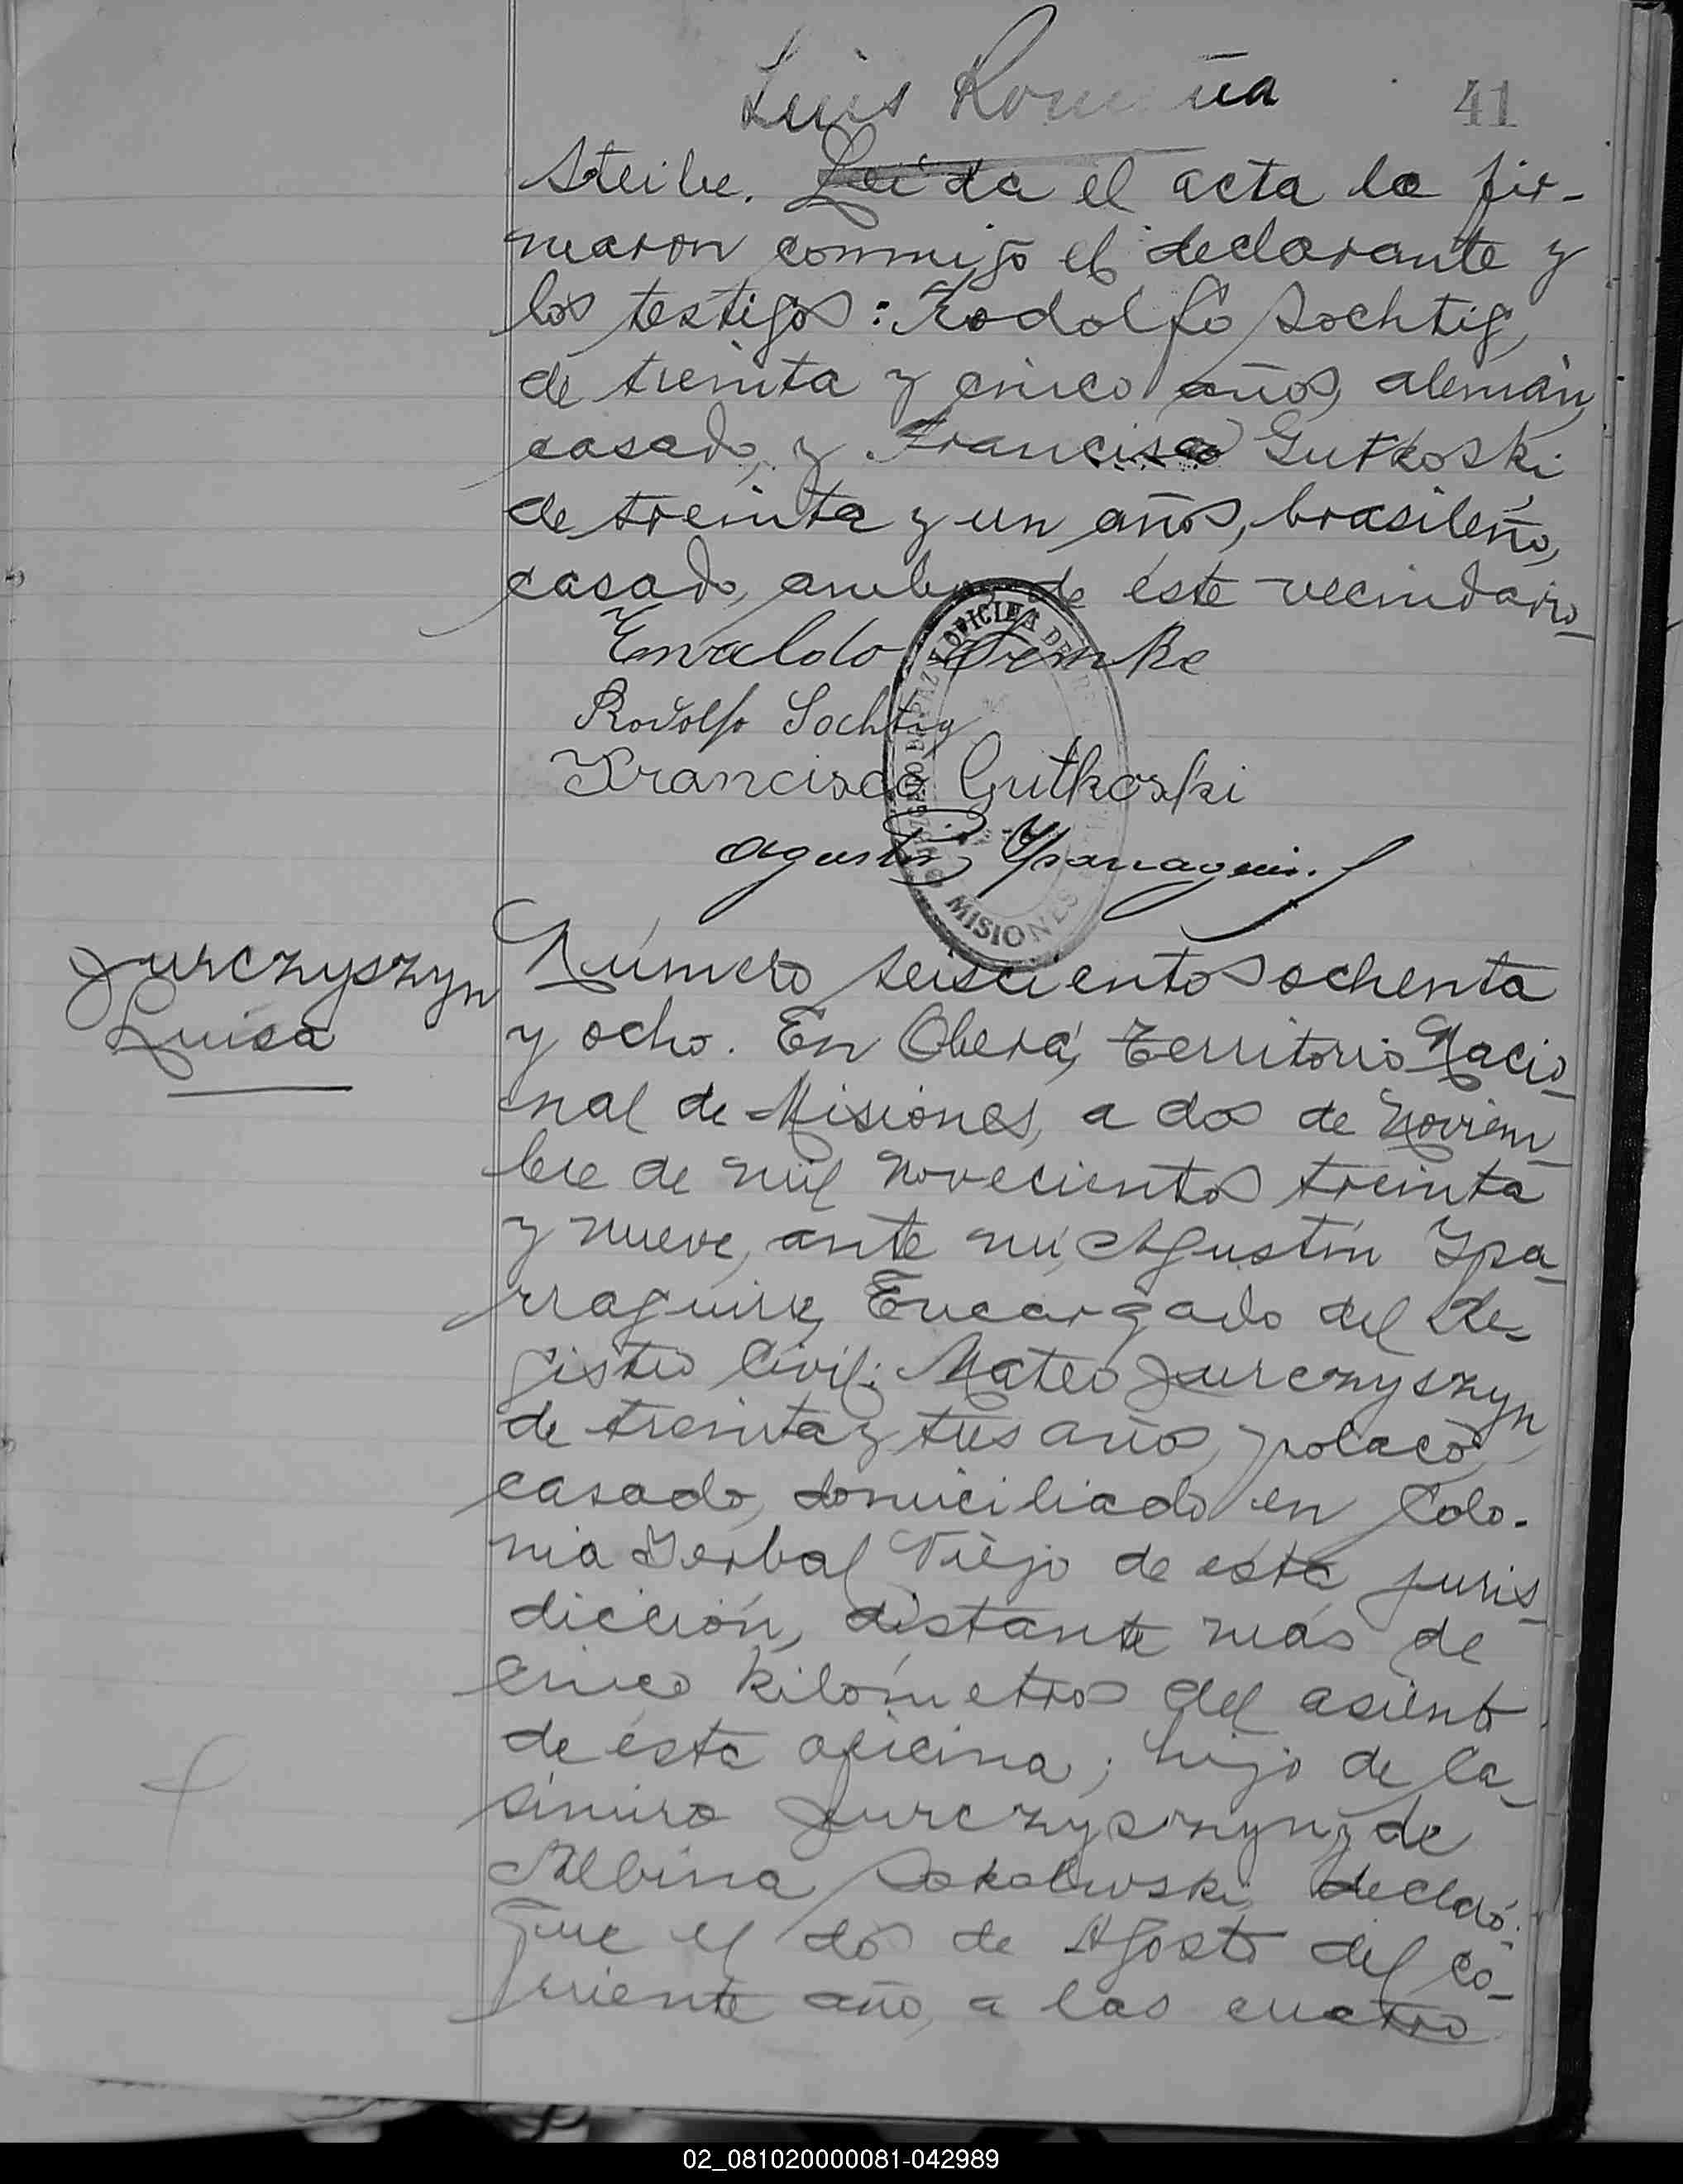 Luis Rom ña
41
Steibe. Leída el acta la fir-
maron conmigo el declarante y
los testigos: Rodolfo Sochtig,
de treinta y cinco años, alemán,
casado, y Francisco Gutkoski
de treinta y un años, brasileño,
casado, ambos de éste vecindario_
Ervaldo
Rodolfo Sochtig
Francisco Gutkoski
Agustin Yparraguirre
OFICINA DE
JUZGADO DE PAZ Y
MISIONES
Jurczyszyn
Luisa
Número seiscientos ochenta
y ocho. En Oberá, Territorio Nacio-
nal de Misiones, a dos de Noviem-
bre de mil novecientos treinta
y nueve, ante mí, Agustín Ypa-
rraguirre, Encargado del Re-
gistro Civil: Mateo Jurczyszyn
de treinta y tres años, polaco,
casado, domiciliado en Colo-
nia Yerbal Viejo de ésta juris-
dicción, distante más de
cinco kilómetros del asiento
de ésta oficina; hijo de Ca-
simiro Jurczyszyn y de
Albina Sokolowski, declaró:
Que el dos de Agosto del co-
rriente año, a las cuatro
02_081020000081-042989